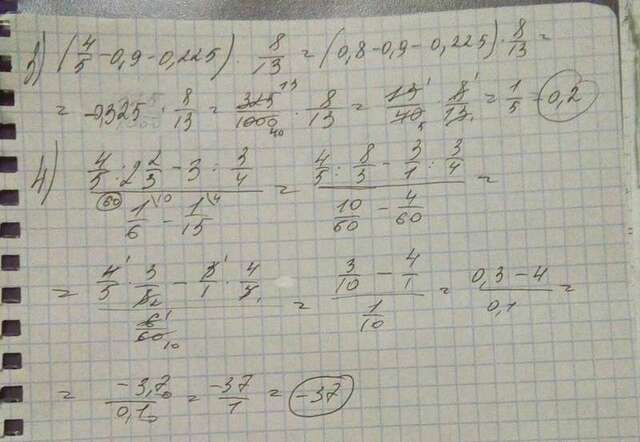 3) (4/5 - 0,9 - 0,225) · 8/13 = (0,8 - 0,9 - 0,225) · 8/13 =
= -0,325 · 8/13 = 325/1000 · 8/13 = 13/40 · 8/13 = 1/5 - 0,2
4) (4/5 : 2 2/3 - 3 : 3/4)/(1/6 - 1/15) = (4/5 : 8/3 - 3/1 : 3/4)/(10/60 - 4/60) =
= (4/5 · 3/8 - 3/1 · 4/3)/(6/60) = (3/10 - 4/1)/(1/10) = (0,3 - 4)/0,1 =
= -3,7/0,1 = -37/1 = -37